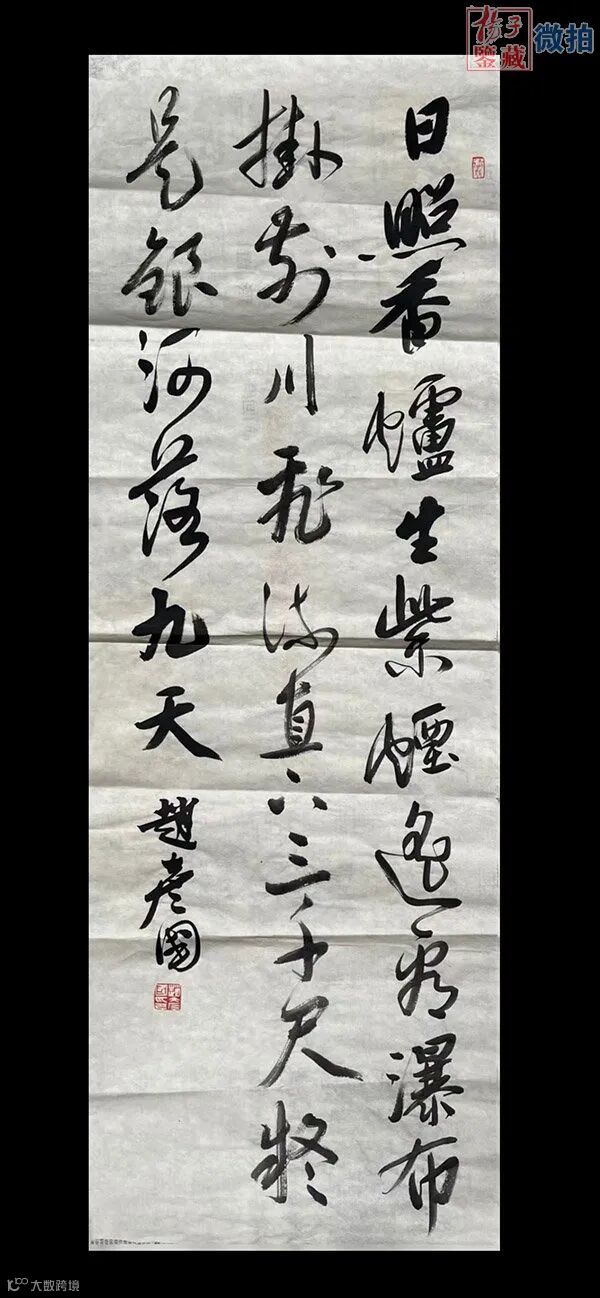 揚子
鑒藏
微拍
日照香爐生紫煙遙看瀑布
掛前川飛流直下三千尺疑
是銀河落九天
趙彥國
大数跨境